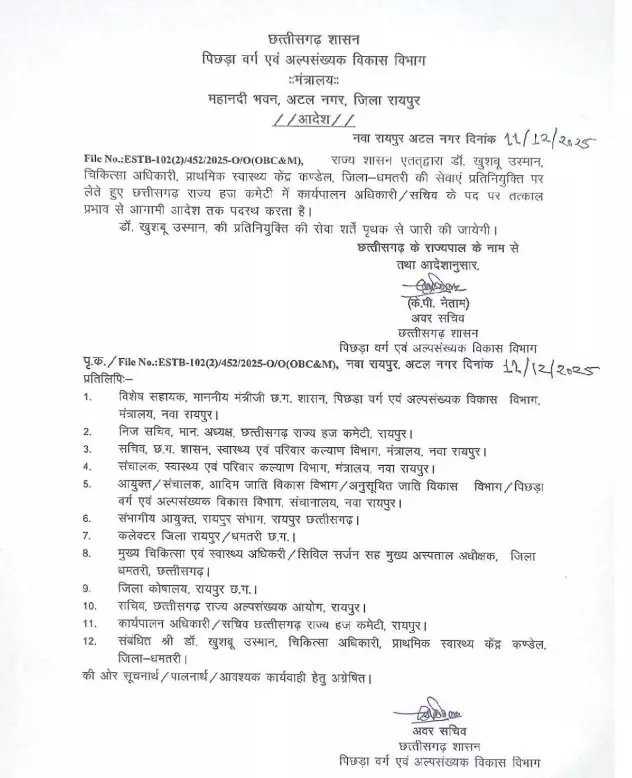 छत्तीसगढ़ शासन
पिछड़ा वर्ग एवं अल्पसंख्यक विकास विभाग
::मंत्रालय::
महानदी भवन, अटल नगर, जिला रायपुर
//आदेश//
नवा रायपुर अटल नगर दिनांक 11/12/2025
File No.:ESTB-102(2)/452/2025-O/O(OBC&M), राज्य शासन एतत्द्वारा डॉ. खुशबू उस्मान,
चिकित्सा अधिकारी, प्राथमिक स्वास्थ्य केंद्र कण्डेल, जिला–धमतरी की सेवाएं प्रतिनियुक्ति पर
लेते हुए छत्तीसगढ़ राज्य हज कमेटी में कार्यपालन अधिकारी/सचिव के पद पर तत्काल
प्रभाव से आगामी आदेश तक पदस्थ करता है।
डॉ. खुशबू उस्मान, की प्रतिनियुक्ति की सेवा शर्तें पृथक से जारी की जायेगी।
छत्तीसगढ़ के राज्यपाल के नाम से
तथा आदेशानुसार,
(के.पी. नेताम)
अवर सचिव
छत्तीसगढ़ शासन
पिछड़ा वर्ग एवं अल्पसंख्यक विकास विभाग
पृ.क./File No.:ESTB-102(2)/452/2025-O/O(OBC&M), नवा रायपुर, अटल नगर दिनांक 11/12/2025
प्रतिलिपिः–
1. विशेष सहायक, माननीय मंत्रीजी छ.ग. शासन, पिछड़ा वर्ग एवं अल्पसंख्यक विकास विभाग,
मंत्रालय, नवा रायपुर।
2. निज सचिव, मान. अध्यक्ष, छत्तीसगढ़ राज्य हज कमेटी, रायपुर।
3. सचिव, छ.ग. शासन, स्वास्थ्य एवं परिवार कल्याण विभाग, मंत्रालय, नवा रायपुर।
4. संचालक, स्वास्थ्य एवं परिवार कल्याण विभाग, मंत्रालय, नवा रायपुर।
5. आयुक्त/संचालक, आदिम जाति विकास विभाग/अनुसूचित जाति विकास विभाग/पिछड़ा
वर्ग एवं अल्पसंख्यक विकास विभाग, संचानालय, नवा रायपुर।
6. संभागीय आयुक्त, रायपुर संभाग, रायपुर छत्तीसगढ़।
7. कलेक्टर जिला रायपुर/धमतरी छ.ग.।
8. मुख्य चिकित्सा एवं स्वास्थ्य अधिकरी/सिविल सर्जन सह मुख्य अस्पताल अधीक्षक, जिला
धमतरी, छत्तीसगढ़।
9. जिला कोषालय, रायपुर छ.ग.।
10. सचिव, छत्तीसगढ़ राज्य अल्पसंख्यक आयोग, रायपुर।
11. कार्यपालन अधिकारी/सचिव छत्तीसगढ़ राज्य हज कमेटी, रायपुर।
12. संबंधित श्री डॉ. खुशबू उस्मान, चिकित्सा अधिकारी, प्राथमिक स्वास्थ्य केंद्र कण्डेल,
जिला–धमतरी।
की ओर सूचनार्थ/पालनार्थ/आवश्यक कार्यवाही हेतु अग्रेषित।
अवर सचिव
छत्तीसगढ़ शासन
पिछड़ा वर्ग एवं अल्पसंख्यक विकास विभाग